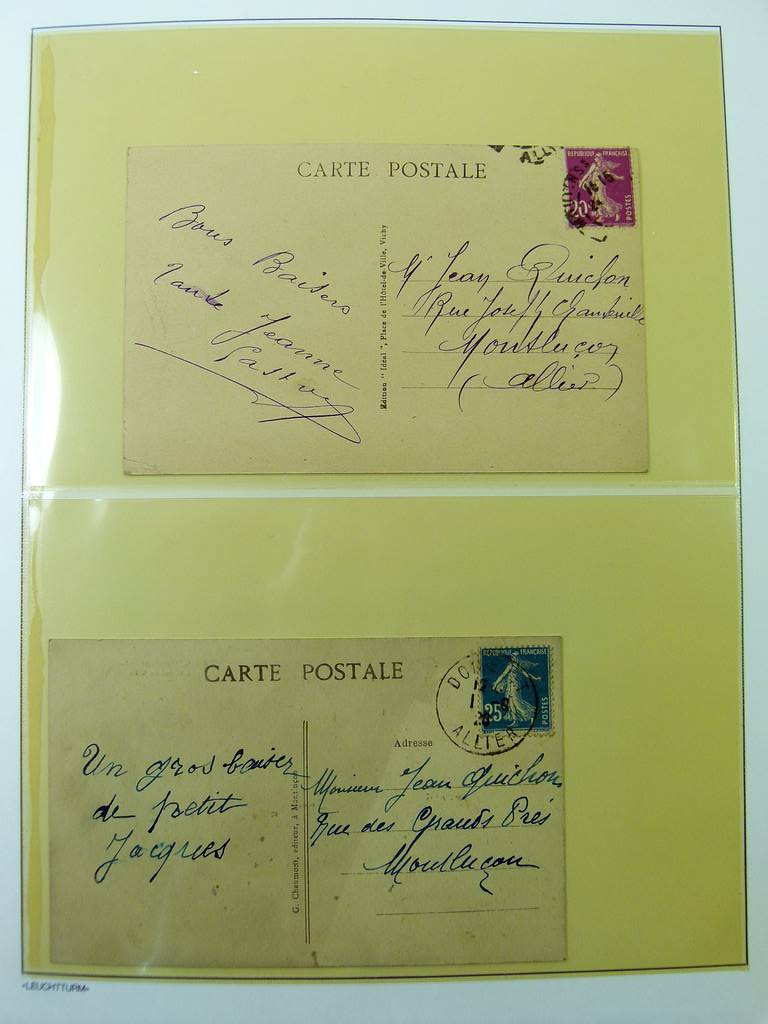 CARTE POSTALE
ALLI
REPUBLIQUE FRANÇAISE
20
POSTES
Bons Baisers
Tante Jeanne
Edition "Idéal", Place de l'Hôtel-de-Ville, Vichy
Mr Jean Quichon
Rue Joseph
Montluçon
(Allier)
CARTE POSTALE
REPUBLIQUE FRANÇAISE
25
POSTES
ALLIER
Adresse
Un gros baiser
de petit
Jacques
G. Chaumont, éditeur, à Montluçon
Monsieur Jean Quichon
Rue des Grands Prés
Montluçon
»LEUCHTTURM«